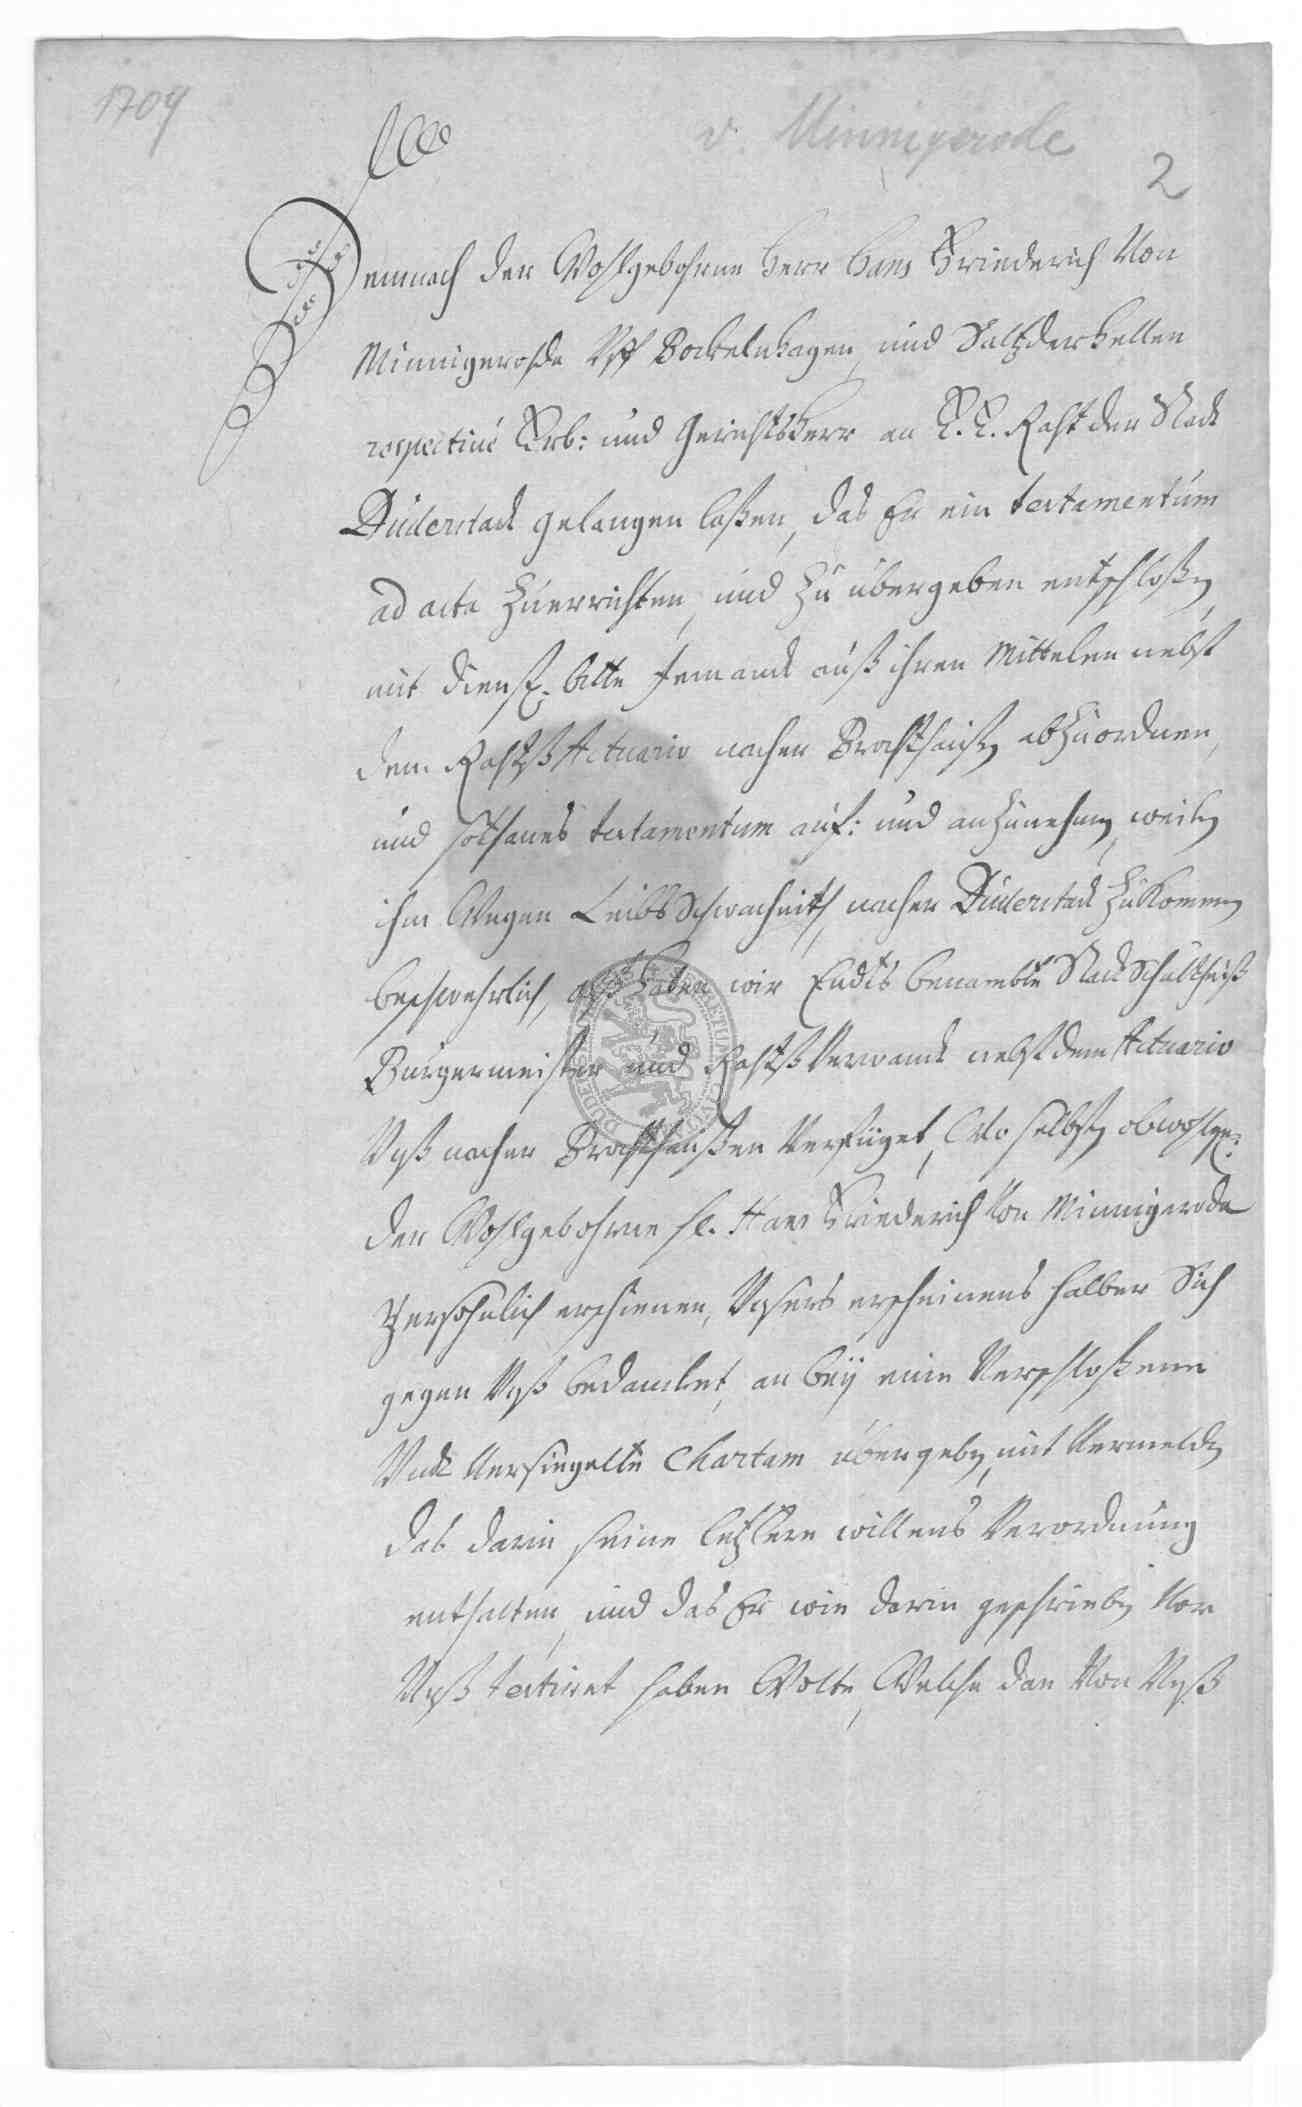 1709
v. Minnigerode
2
Demnach der Wohlgebohrne Herr Hans Friederich Von
Minnigerohde Uff Bockelnhagen, und Saltzderhellen
respectivè Erb: und Gerichtsherr an E. E. Raht der Stadt
Duderstadt gelangen laßen, das Er ein testamentum
ad acta zu errichten, und zu übergeben entschloßen,
mit dienstl. bitte Jemandt auß ihren Mittelen nebst
dem Rahtß Actuario nacher Brochthausen abzuordnen,
und sothanes testamentum auf: und anzunehmen, weilen
ihm Wegen Leibs Schwachheit, nacher Duderstadt zu Kommen
beschwehrlich, alß haben wir Endts benambte Stadt Schultheiß
Burgermeister und Rahtß Verwandt nebst dem Actuario
Unß nacher Brochthaußen Verfüget, Wo selbsten obwohlge:
der Wohlgebohrne H. Hans Friederich Von Minnigerode
Persöhnlich erschienen, Unsers erscheinens halber Sich
gegen Unß bedancket, an bey eine Verschloßene
Undt Versiegelte Chartam übergeben, mit Vermelden
das darin seine letztere willens Verordnung
enthalten, und das Er wie darin geschrieben Vor
Unß testiret haben Wolte, Welche dan Von Unß